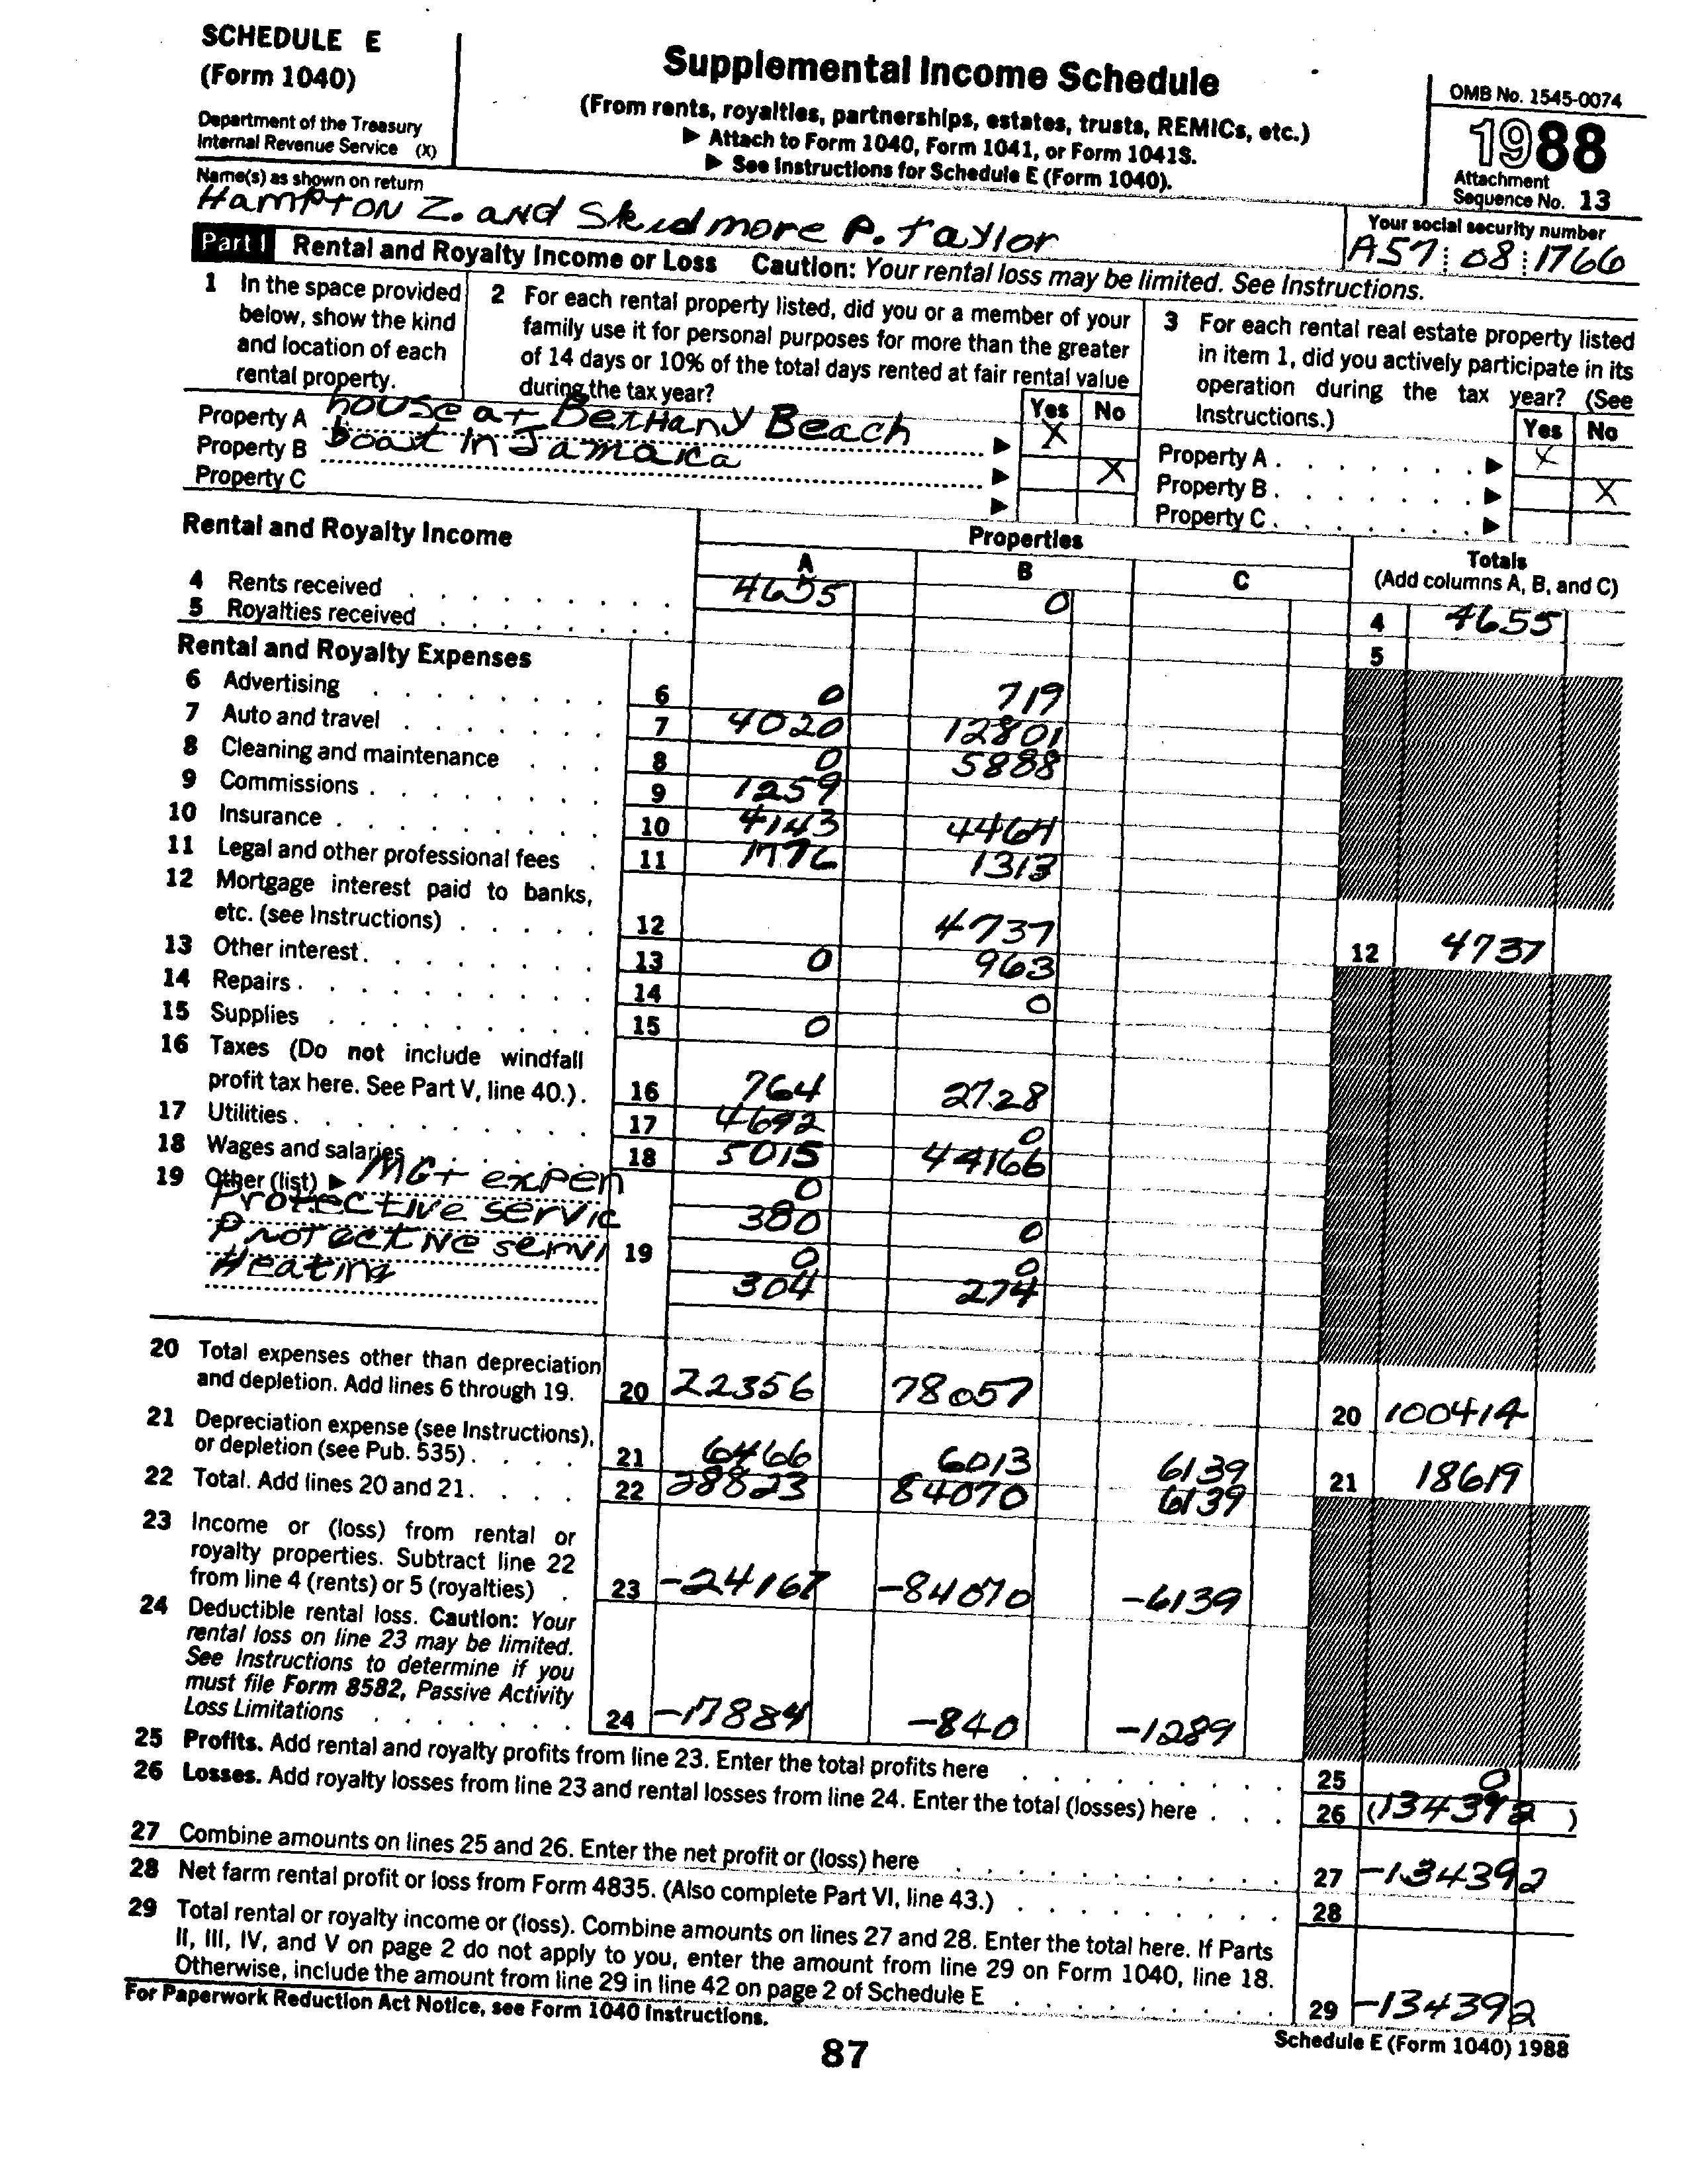 SCHEDULE E
(Form 1040)
Department of the Treasury
Internal Revenue Service (X)
Supplemental Income Schedule
(From rents, royalties, partnerships, estates, trusts, REMICs, etc.)
▶ Attach to Form 1040, Form 1041, or Form 1041S.
▶ See Instructions for Schedule E (Form 1040).
OMB No. 1545-0074
1988
Attachment
Sequence No. 13
Name(s) as shown on return
Hampton Z. and Skidmore P. Taylor
Your social security number
A57 08 1766
Part I Rental and Royalty Income or Loss Caution: Your rental loss may be limited. See Instructions.
1 In the space provided
below, show the kind
and location of each
rental property.
2 For each rental property listed, did you or a member of your
family use it for personal purposes for more than the greater
of 14 days or 10% of the total days rented at fair rental value
during the tax year?
3 For each rental real estate property listed
in item 1, did you actively participate in its
operation during the tax year? (See
Instructions.)
Yes No
Yes No
Property A house at Bethany Beach ▶ X
Property B boat in Jamaica ▶ X
Property C ▶
Property A ▶ X
Property B ▶ X
Property C ▶
Rental and Royalty Income
Properties
A B C
Totals
(Add columns A, B, and C)
4 Rents received 4655 0 4 4655
5 Royalties received 5
Rental and Royalty Expenses
6 Advertising 6 0 719
7 Auto and travel 7 4020 12801
8 Cleaning and maintenance 8 0 5888
9 Commissions 9 1259
10 Insurance 10 4143 4464
11 Legal and other professional fees 11 1776 1313
12 Mortgage interest paid to banks,
etc. (see Instructions) 12 4737 12 4737
13 Other interest 13 0 963
14 Repairs 14 0
15 Supplies 15 0
16 Taxes (Do not include windfall
profit tax here. See Part V, line 40.) 16 764 2728
17 Utilities 17 4692 0
18 Wages and salaries 18 5015 44166
19 Other (list) ▶ MGt expen 0
Protective servic 380 0
Protective servi 19 0 0
Heating 304 274
20 Total expenses other than depreciation
and depletion. Add lines 6 through 19. 20 22356 78057 20 100414
21 Depreciation expense (see Instructions),
or depletion (see Pub. 535) 21 6466 6013 6139 21 18619
22 Total. Add lines 20 and 21 22 28823 84070 6139
23 Income or (loss) from rental or
royalty properties. Subtract line 22
from line 4 (rents) or 5 (royalties) 23 -24167 -84070 -6139
24 Deductible rental loss. Caution: Your
rental loss on line 23 may be limited.
See Instructions to determine if you
must file Form 8582, Passive Activity
Loss Limitations 24 -17884 -840 -1289
25 Profits. Add rental and royalty profits from line 23. Enter the total profits here 25 0
26 Losses. Add royalty losses from line 23 and rental losses from line 24. Enter the total (losses) here 26 (134392)
27 Combine amounts on lines 25 and 26. Enter the net profit or (loss) here 27 -134392
28 Net farm rental profit or loss from Form 4835. (Also complete Part VI, line 43.) 28
29 Total rental or royalty income or (loss). Combine amounts on lines 27 and 28. Enter the total here. If Parts
II, III, IV, and V on page 2 do not apply to you, enter the amount from line 29 on Form 1040, line 18.
Otherwise, include the amount from line 29 in line 42 on page 2 of Schedule E 29 -134392
For Paperwork Reduction Act Notice, see Form 1040 Instructions.
Schedule E (Form 1040) 1988
87